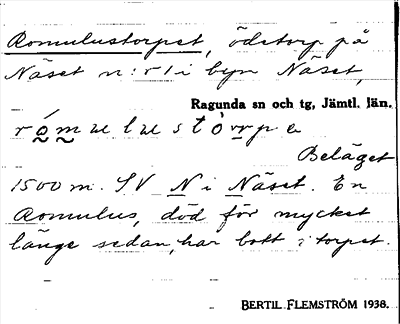 Romulustorpet, ödetorp på
Näset n:r 1 i byn Näset,
Ragunda sn och tg, Jämtl. län.
rómulustòrpe
Beläget
1500 m. SV N i Näset. En
Romulus, död för mycket
länge sedan, har bott i torpet.
BERTIL FLEMSTRÖM 1938.